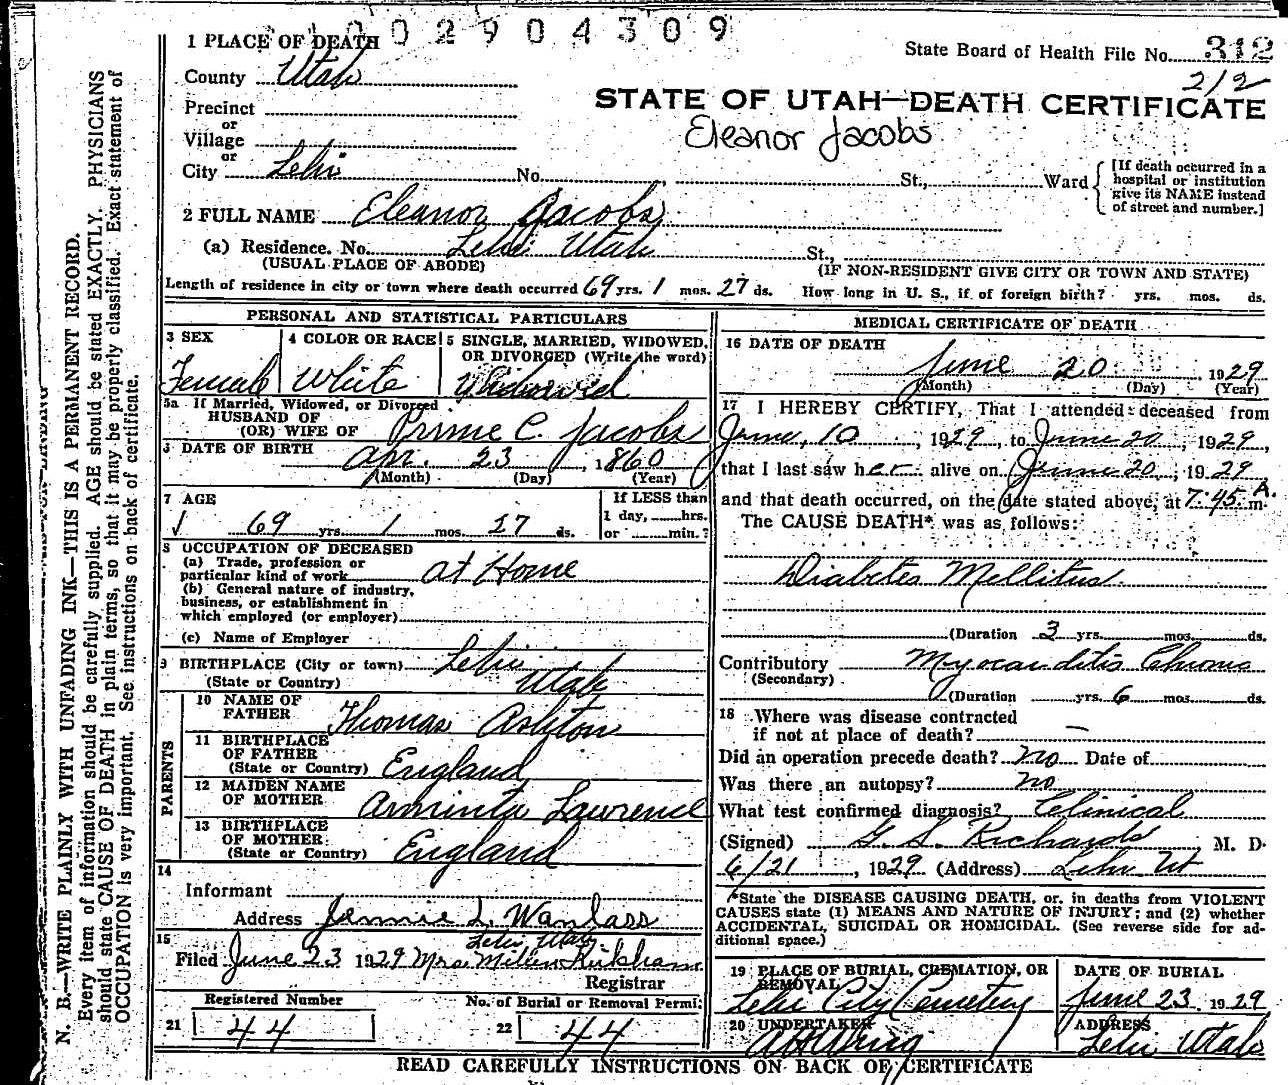 1002904309
State Board of Health File No. 312
212
STATE OF UTAH—DEATH CERTIFICATE
Eleanor Jacobs
1 PLACE OF DEATH
County Utah
Precinct
or
Village
or
City Lehi No. , St., Ward
[If death occurred in a
hospital or institution
give its NAME instead
of street and number.]
2 FULL NAME Eleanor Jacobs
(a) Residence. No. Lehi Utah St.,
(USUAL PLACE OF ABODE) (IF NON-RESIDENT GIVE CITY OR TOWN AND STATE)
Length of residence in city or town where death occurred 69 yrs. 1 mos. 27 ds. How long in U. S., if of foreign birth? yrs. mos. ds.
PERSONAL AND STATISTICAL PARTICULARS
3 SEX 4 COLOR OR RACE 5 SINGLE, MARRIED, WIDOWED,
OR DIVORCED (Write the word)
Female White Widowed
5a If Married, Widowed, or Divorced
HUSBAND OF
(OR) WIFE OF Prime C. Jacobs
6 DATE OF BIRTH
Apr. 23, 1860
(Month) (Day) (Year)
7 AGE If LESS than
1 day, hrs.
69 yrs. 1 mos. 27 ds. or min.?
8 OCCUPATION OF DECEASED
(a) Trade, profession or
particular kind of work at Home
(b) General nature of industry,
business, or establishment in
which employed (or employer)
(c) Name of Employer
9 BIRTHPLACE (City or town) Lehi
(State or Country) Utah
PARENTS
10 NAME OF
FATHER Thomas Ashton
11 BIRTHPLACE
OF FATHER
(State or Country) England
12 MAIDEN NAME
OF MOTHER Arminta Lawrence
13 BIRTHPLACE
OF MOTHER
(State or Country) England
14
Informant
Address Jennie L. Wanlass
Lehi Utah
15
Filed June 23 1929 Mrs. Kirkham
Registrar
Registered Number No. of Burial or Removal Permit
21 44 22 44
MEDICAL CERTIFICATE OF DEATH
16 DATE OF DEATH
June 20 1929
(Month) (Day) (Year)
17 I HEREBY CERTIFY, That I attended deceased from
June, 10, 1929, to June 20, 1929,
that I last saw her alive on June 20, 1929
and that death occurred, on the date stated above, at 7:45 A.m.
The CAUSE DEATH* was as follows:
Diabetes Mellitus
(Duration 3 yrs. mos. ds.
Contributory Myocarditis Chronic
(Secondary)
(Duration yrs. 6 mos. ds.
18 Where was disease contracted
if not at place of death? —
Did an operation precede death? no Date of
Was there an autopsy? no
What test confirmed diagnosis? Clinical
(Signed) G. S. Richards M. D.
6/21, 1929 (Address) Lehi Ut
*State the DISEASE CAUSING DEATH, or, in deaths from VIOLENT
CAUSES state (1) MEANS AND NATURE OF INJURY; and (2) whether
ACCIDENTAL, SUICIDAL OR HOMICIDAL. (See reverse side for ad-
ditional space.)
19 PLACE OF BURIAL, CREMATION, OR
REMOVAL
Lehi City Cemetery
DATE OF BURIAL
June 23 1929
20 UNDERTAKER
ADDRESS
Lehi Utah
READ CAREFULLY INSTRUCTIONS ON BACK OF CERTIFICATE
N. B.—WRITE PLAINLY WITH UNFADING INK—THIS IS A PERMANENT RECORD.
Every item of information should be carefully supplied. AGE should be stated EXACTLY. PHYSICIANS
should state CAUSE OF DEATH in plain terms, so that it may be properly classified. Exact statement of
OCCUPATION is very important. See instructions on back of certificate.